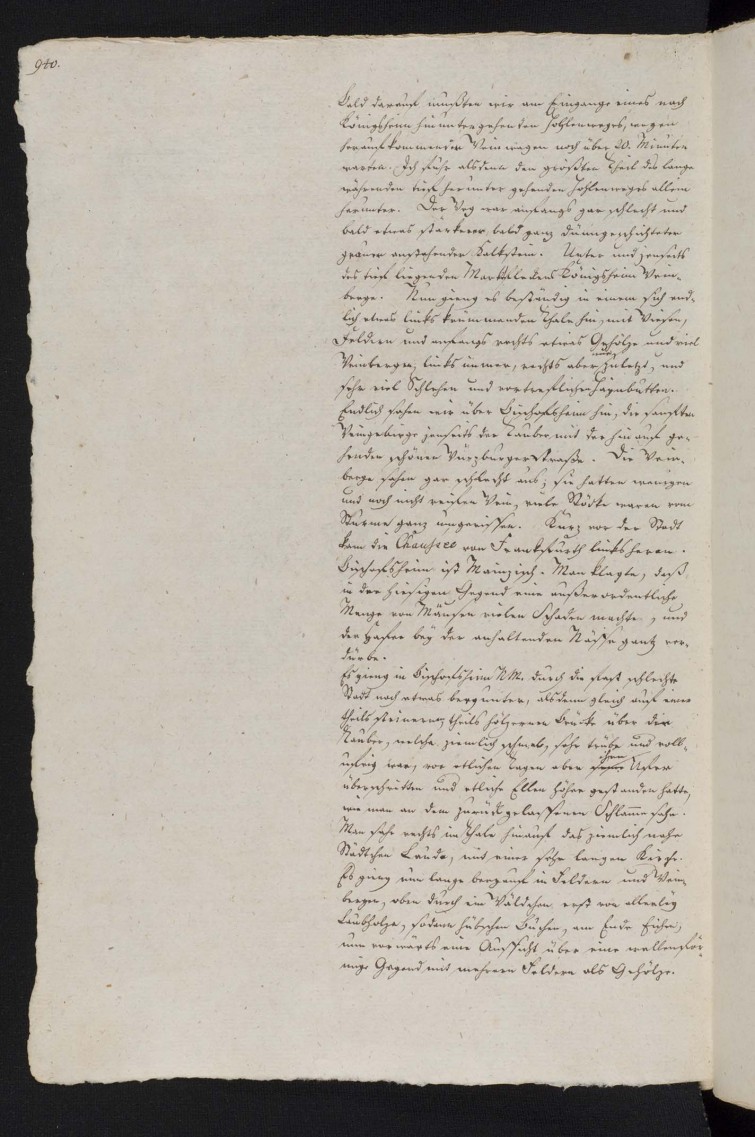 940.
Bald darauf mußten wir am Eingange eines nach
Königsheim hinunter gehenden Hohlenweges, wegen
heraufkommender Weinwagen noch über 20. Minuten
warten. Ich fuhr alsdenn den größten Theil des lange
währenden tief herunter gehenden Hohlenweges allein
herunter. Der Weg war anfangs gar schlecht und
bald etwas stärkerer, bald ganz dünngeschichteter
grauer anstehender Kalkstein. Unter und jenseits
des tief liegenden Marktfleckens Königsheim Wein-
berge. Nun gieng es beständig in einem sich end-
lich etwas links krümmenden Thale hin, mit Wiesen,
Feldern und anfangs rechts etwas Gehölze und viel
Weinbergen, links immer, rechts aber nur zuletzt, und
sehr viel Schlehen und vortreflichen Hainbutten.
Endlich sahen wir über Bischofsheim hin, die sanften
Weingebirge jenseits der Tauber mit der hinauf ge-
henden schönen Würzburgerstraße. Die Wein-
berge sahen gar schlecht aus; sie hatten wenigen
und noch nicht reifen Wein, viele Stöcke waren vom
Sturme ganz umgerissen. Kurz vor der Stadt
kam die Chaussee von Frankfurth links heran.
Bischofsheim ist Mainzisch. Man klagte, daß
in der hiesigen Gegend eine außerordentliche
Menge von Mäusen vielen Schaden machte, und
der Hafer bey der anhaltenden Nässe gantz ver-
dürbe.
Es gieng in Bischofsheim N.M. durch die fast schlechte
Stadt noch etwas bergunter, alsdenn gleich auf einer
theils steinernen, theils hölzernen Brücke über die
Tauber, welche ziemlich schmal, sehr trübe und voll-
ufrig war, vor etlichen Tagen aber ihre Ufer
überschritten und etliche Ellen höher gestanden hatte,
wie man an dem zurückgelassenen Schlamme sahe.
Man sah rechts im Thale hinauf das ziemlich nahe
Städtchen Lauda, mit einer sehr langen Kirche.
Es gieng nun lange bergauf in Feldern und Wein-
bergen, oben durch ein Wäldchen erst von allerley
Laubholze, sodenn hübschen Buchen, am Ende Eichen,
nun vorwärts eine Aussicht über eine wellenför-
mige Gegend mit mehrern Feldern als Gehölze.